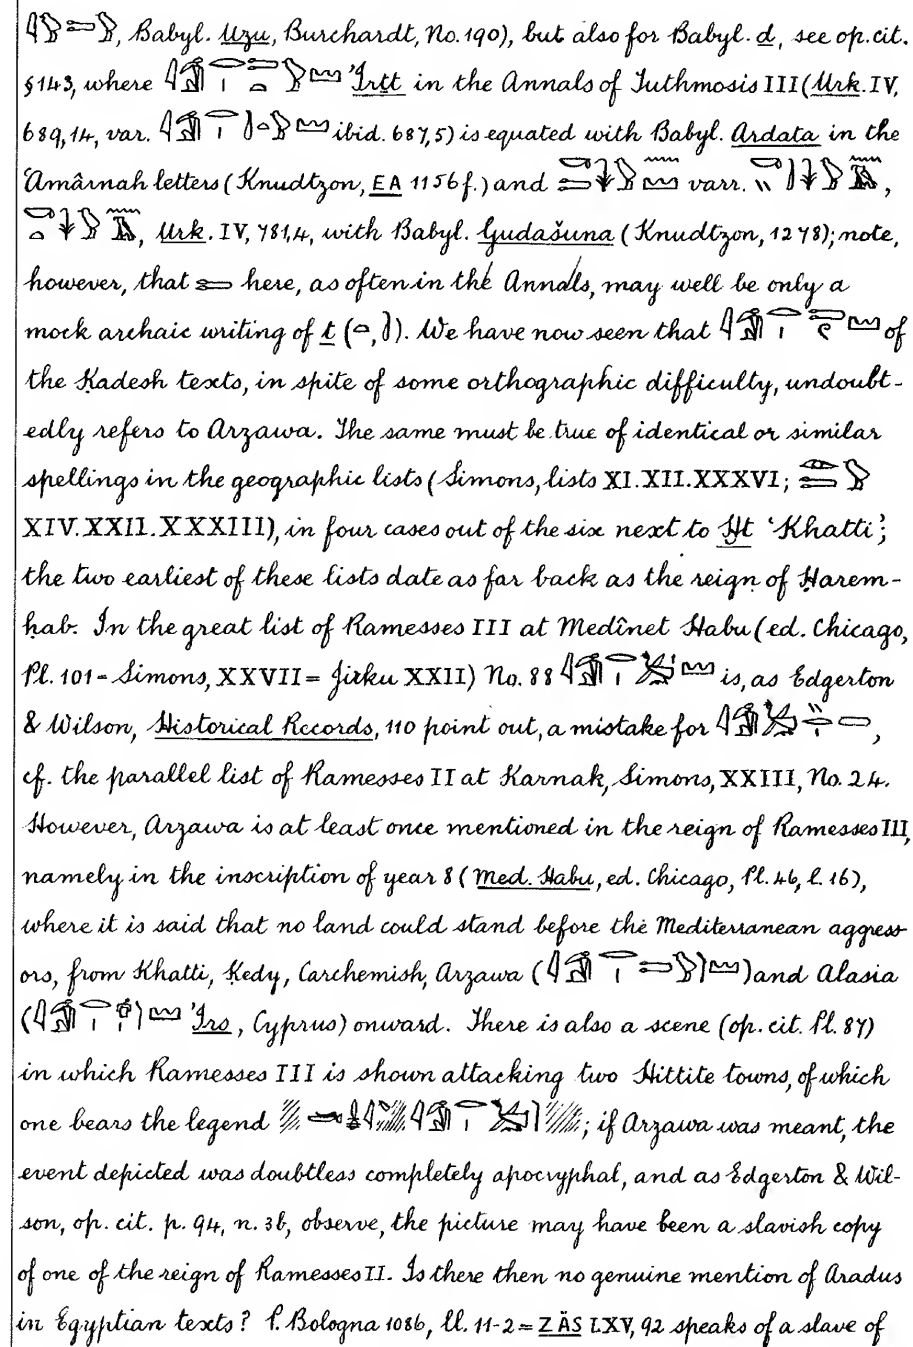 , Babyl. Uzu, Burchardt, No. 190), but also for Babyl. d, see op. cit.
§143, where ꞽrṯt in the Annals of Tuthmosis III (Urk. IV,
689,14, var. ibid. 687,5) is equated with Babyl. Ardata in the
'Amârnah letters (Knudtzon, EA 1156f.) and varr. ,
, Urk. IV, 781,4, with Babyl. Gudašuna (Knudtzon, 1278); note,
however, that here, as often in the Annals, may well be only a
mock archaic writing of t ( , ). We have now seen that of
the Ḳadesh texts, in spite of some orthographic difficulty, undoubt-
edly refers to Arzawa. The same must be true of identical or similar
spellings in the geographic lists (Simons, lists XI. XII. XXXVI;
XIV. XXII. XXXIII), in four cases out of the six next to Ḫt 'Khatti';
the two earliest of these lists date as far back as the reign of Ḥarem-
ḥab. In the great list of Ramesses III at Medînet Habu (ed. Chicago,
Pl. 101 = Simons, XXVII = Jirku XXII) No. 88 is, as Edgerton
& Wilson, Historical Records, 110 point out, a mistake for ,
cf. the parallel list of Ramesses II at Karnak, Simons, XXIII, No. 24.
However, Arzawa is at least once mentioned in the reign of Ramesses III,
namely in the inscription of year 8 (Med. Habu, ed. Chicago, Pl. 46, l. 16),
where it is said that no land could stand before the Mediterranean aggress-
ors, from Khatti, Ḳedy, Carchemish, Arzawa ( ) and Alasia
( ꞽrs, Cyprus) onward. There is also a scene (op. cit. Pl. 87)
in which Ramesses III is shown attacking two Hittite towns, of which
one bears the legend ; if Arzawa was meant, the
event depicted was doubtless completely apocryphal, and as Edgerton & Wil-
son, op. cit. p. 94, n. 3b, observe, the picture may have been a slavish copy
of one of the reign of Ramesses II. Is there then no genuine mention of Aradus
in Egyptian texts? P. Bologna 1086, ll. 11-2 = ZÄS LXV, 92 speaks of a slave of